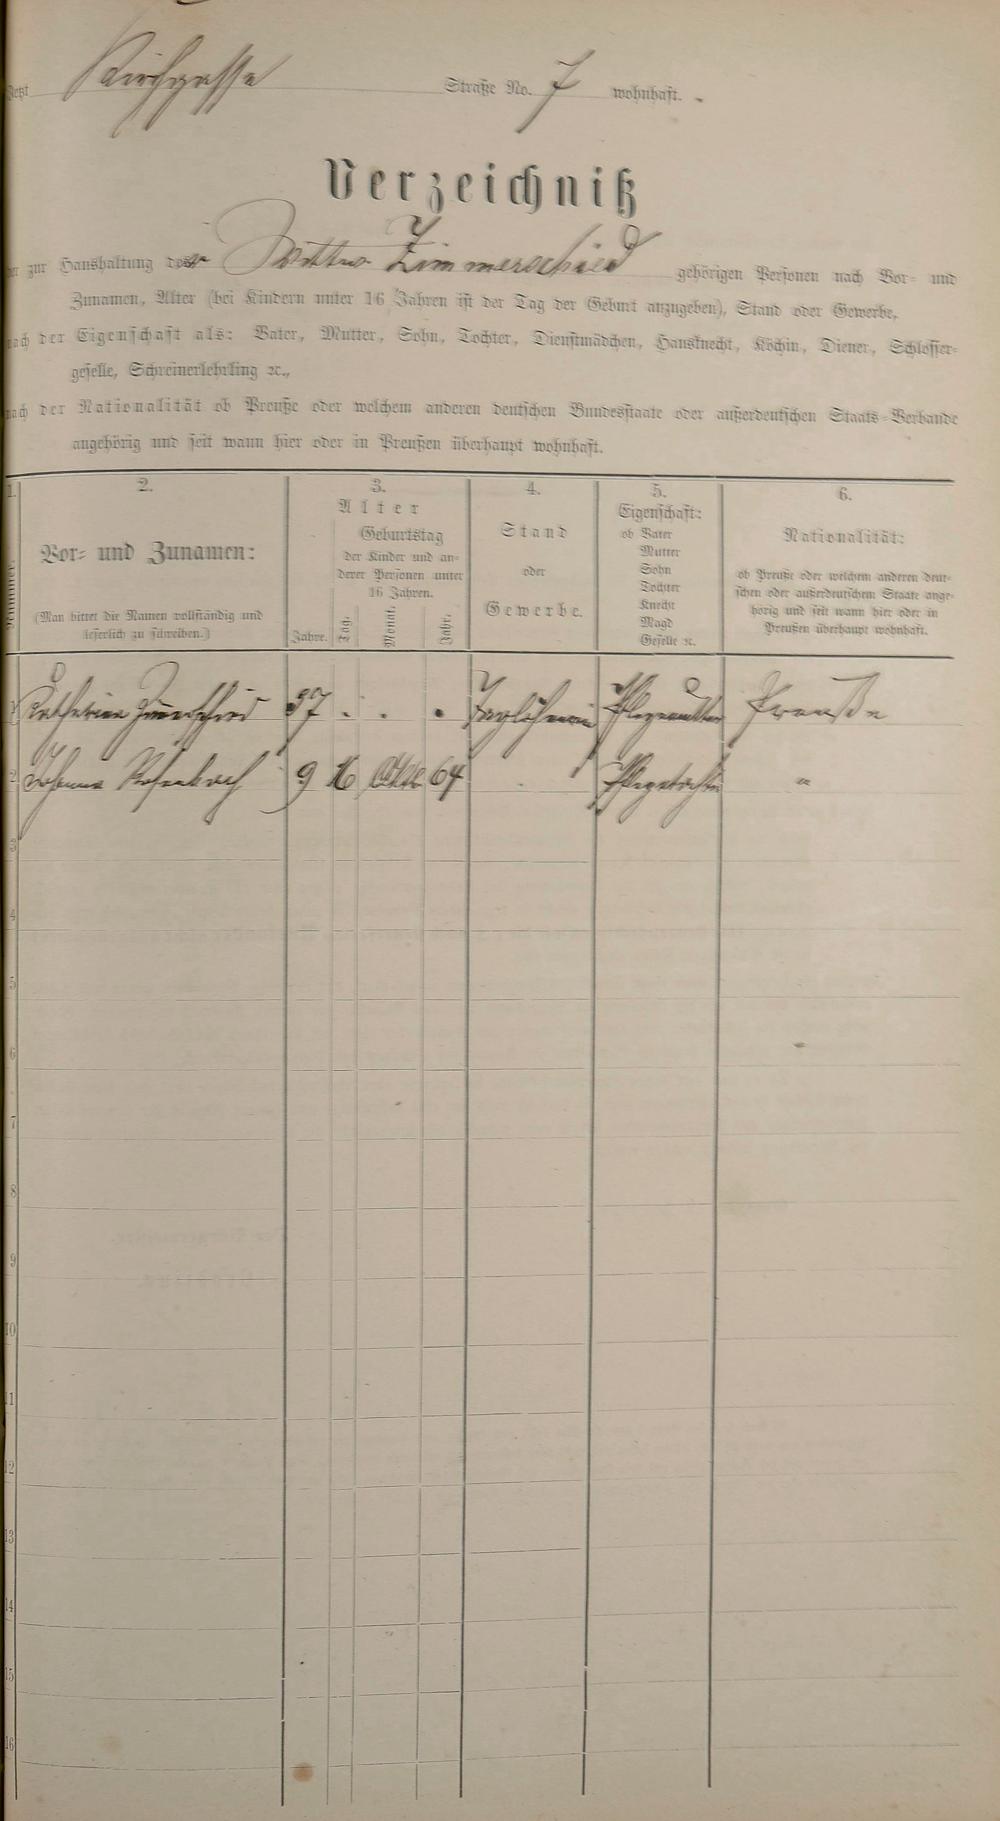 Jetzt Kirchgasse Straße No. 7 wohnhaft.
Verzeichniß
der zur Haushaltung der Wittwe Zimmerschied gehörigen Personen nach Vor- und
Zunamen, Alter (bei Kindern unter 16 Jahren ist der Tag der Geburt anzugeben), Stand oder Gewerbe,
nach der Eigenschaft als: Vater, Mutter, Sohn, Tochter, Dienstmädchen, Hausknecht, Köchin, Diener, Schlosser-
geselle, Schreinerlehrling ꝛc.,
nach der Nationalität ob Preuße oder welchem anderen deutschen Bundesstaate oder außerdeutschen Staats-Verbande
angehörig und seit wann hier oder in Preußen überhaupt wohnhaft.
1. 2. 3. 4. 5. 6.
Nummer.
Vor- und Zunamen:
(Man bittet die Namen vollständig und
leserlich zu schreiben.)
Alter
Jahre.
Geburtstag
der Kinder und an-
derer Personen unter
16 Jahren.
Tag. Monat. Jahr.
Stand
oder
Gewerbe.
Eigenschaft:
ob Vater
Mutter
Sohn
Tochter
Knecht
Magd
Geselle ꝛc.
Nationalität:
ob Preuße oder welchem anderen deut-
schen oder außerdeutschem Staate ange-
hörig und seit wann hier oder in
Preußen überhaupt wohnhaft.
1 Katharina Zimerschied 37 . . . Taglöhnerin Pflegemutter Preuße
2 Johanna Rosenbach 9 16 Oktb 64 . Pflegetochter "
3
4
5
6
7
8
9
10
11
12
13
14
15
16